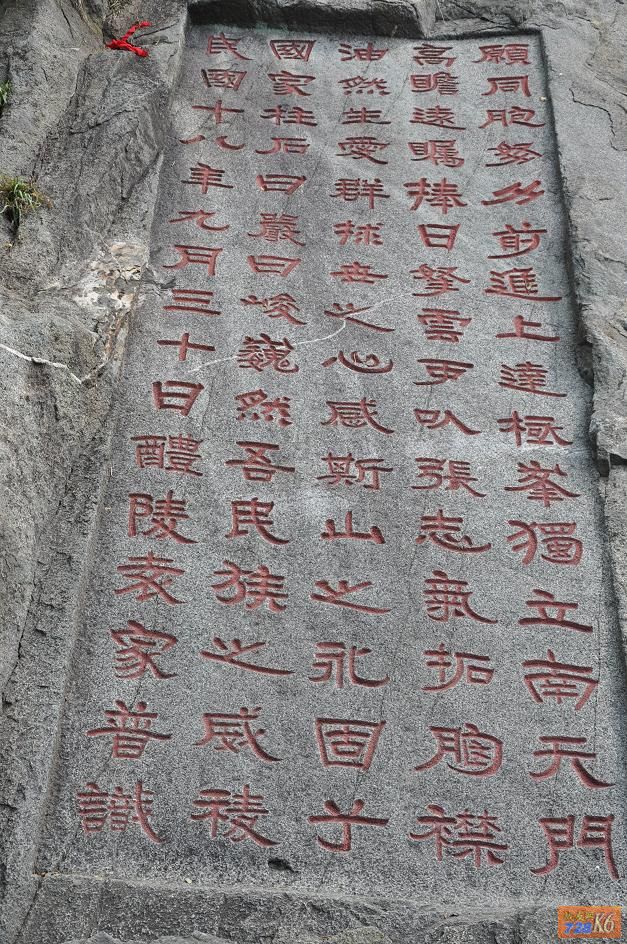 願同胞努力前進上達極峯獨立南天門
高瞻遠矚捧日拏雲可以張志氣拓胸襟
油然生愛羣捄世之心感斯山之永固乎
國家柱石曰嚴曰峻巍然吾民族之威稜
民國十八年九月三十日醴陵袁家普識
728 K6